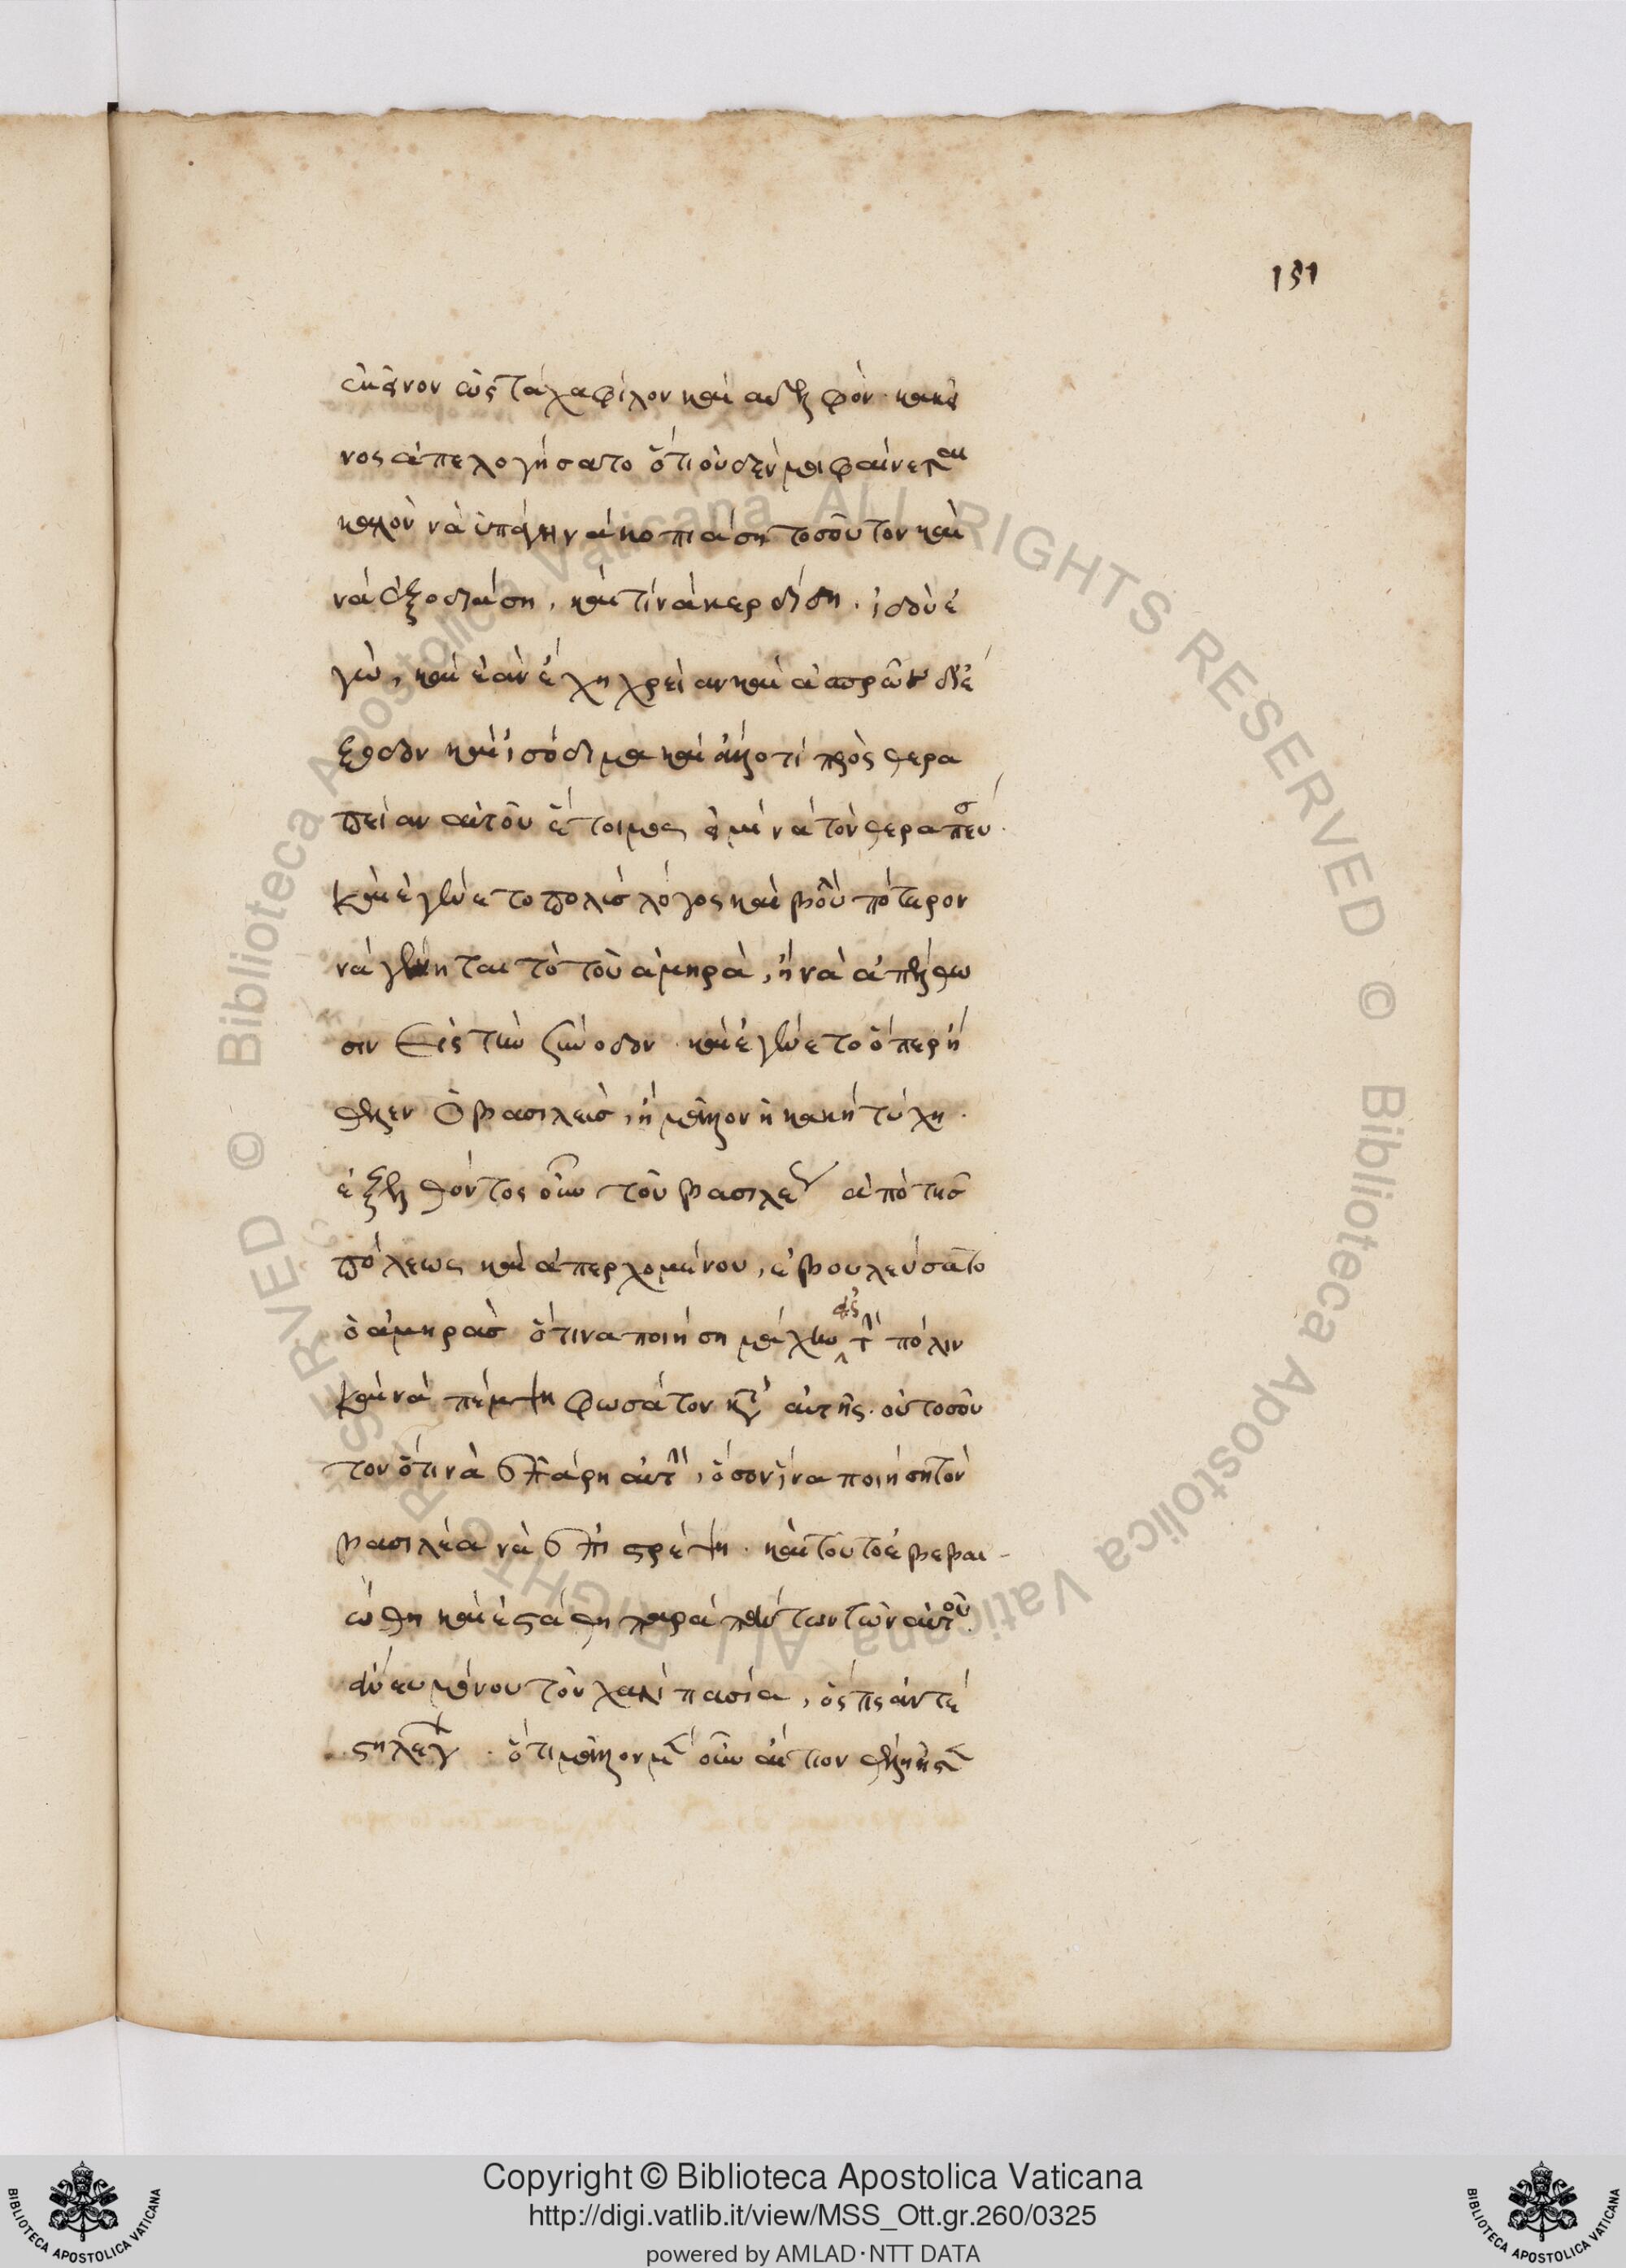 151
ἐκεῖνον ὡς τάχα φίλον καὶ ἀδελφόν· κακεῖ
νος ἀπελογήσατο ὅτι οὐδέν μοι φαίνεται
καλὸν νὰ ὑπάγη νὰ κοπιάση τοσοῦτον καὶ
νὰ ἐξοδιάση, καὶ τί νὰ κερδίση. ἰδοὺ ἐ
γὼ, καὶ ἐὰν ἔχη χρείαν καὶ ἀσπρῶν δι' ἔ
ξοδον καὶ ἰσόδιμα καὶ ἄλλο τί πρὸς θερα
πείαν αὐτοῦ ἕτοιμος εἰμὶ νὰ τὸν θεραπεύσ
καὶ ἐγένετο πολὺς λόγος καὶ βουλὴ πότερον
νὰ γένηται τὸ τοῦ ἀμηρᾶ, ἢ νὰ ἀπέλθω
σιν εἰς τὴν σύνοδον· καὶ ἐγένετο ὅπερ ἤ
θελεν ὁ βασιλεὺς, ἢ μᾶλλον ἡ κακὴ τύχη.
ἐξελθόντος οὖν τοῦ βασιλέως ἀπὸ τῆς
πόλεως καὶ ἀπερχομένου, ἐβουλεύσατο
ὁ ἀμηρᾶς ὅτι να ποιήση μάχην εἰς τὴν πόλιν
καὶ νὰ πέμψη φωσάτον κατ' αὐτῆς· οὐ τοσοῦ
τον ὅτι νὰ ἐπάρη αὐτὴν, ὅσον ἵνα ποιήση τὸν
βασιλέα νὰ ἐπιστρέψη. καὶ τοῦτο ἐβεβαι-
ώθη καὶ ἐστάθη παρὰ πάντων τῶν αὐτοῦ.
ἄνευ μόνου τὸν χαλὶ πασία, ὅστις ἀντέ
στη λέγων· ὅτι μᾶλλον μὲν οὖν αἴτιον θέλει εἶσται
Copyright © Biblioteca Apostolica Vaticana
http://digi.vatlib.it/view/MSS_Ott.gr.260/0325
powered by AMLAD·NTT DATA
BIBLIOTECA APOSTOLICA VATICANA
BIBLIOTECA APOSTOLICA VATICANA
© Biblioteca Apostolica Vaticana ALL RIGHTS RESERVED
© Biblioteca Apostolica Vaticana ALL RIGHTS RESERVED